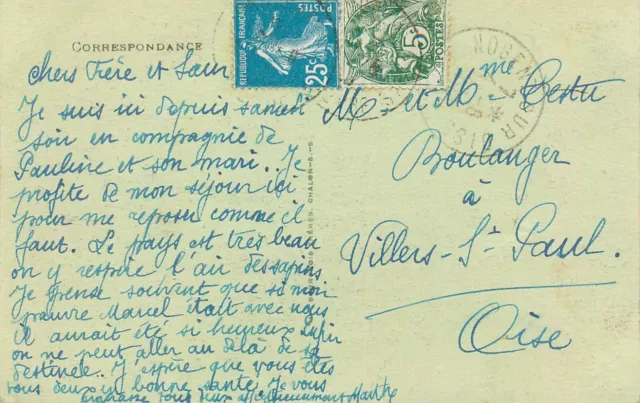 CORRESPONDANCE
Chers Frère et Sœur
Je suis ici depuis samedi
soir en compagnie de
Pauline et son mari.. Je
profite de mon séjour ici
pour me reposer comme il
faut. Le pays est très beau
on y respire l'air des sapins
Je pense souvent que si mon
pauvre Marcel était avec nous
il aurait été si heureux
on ne peut aller au delà de sa
destinée.. J'espère que vous êtes
tous deux en bonne santé Je vous
embrasse tous deux
RÉPUBLIQUE FRANÇAISE
POSTES
25c
5c
POSTES
NOGENT SUR
M. et Mme
Boulanger
à
Villers-St-Paul.
Oise